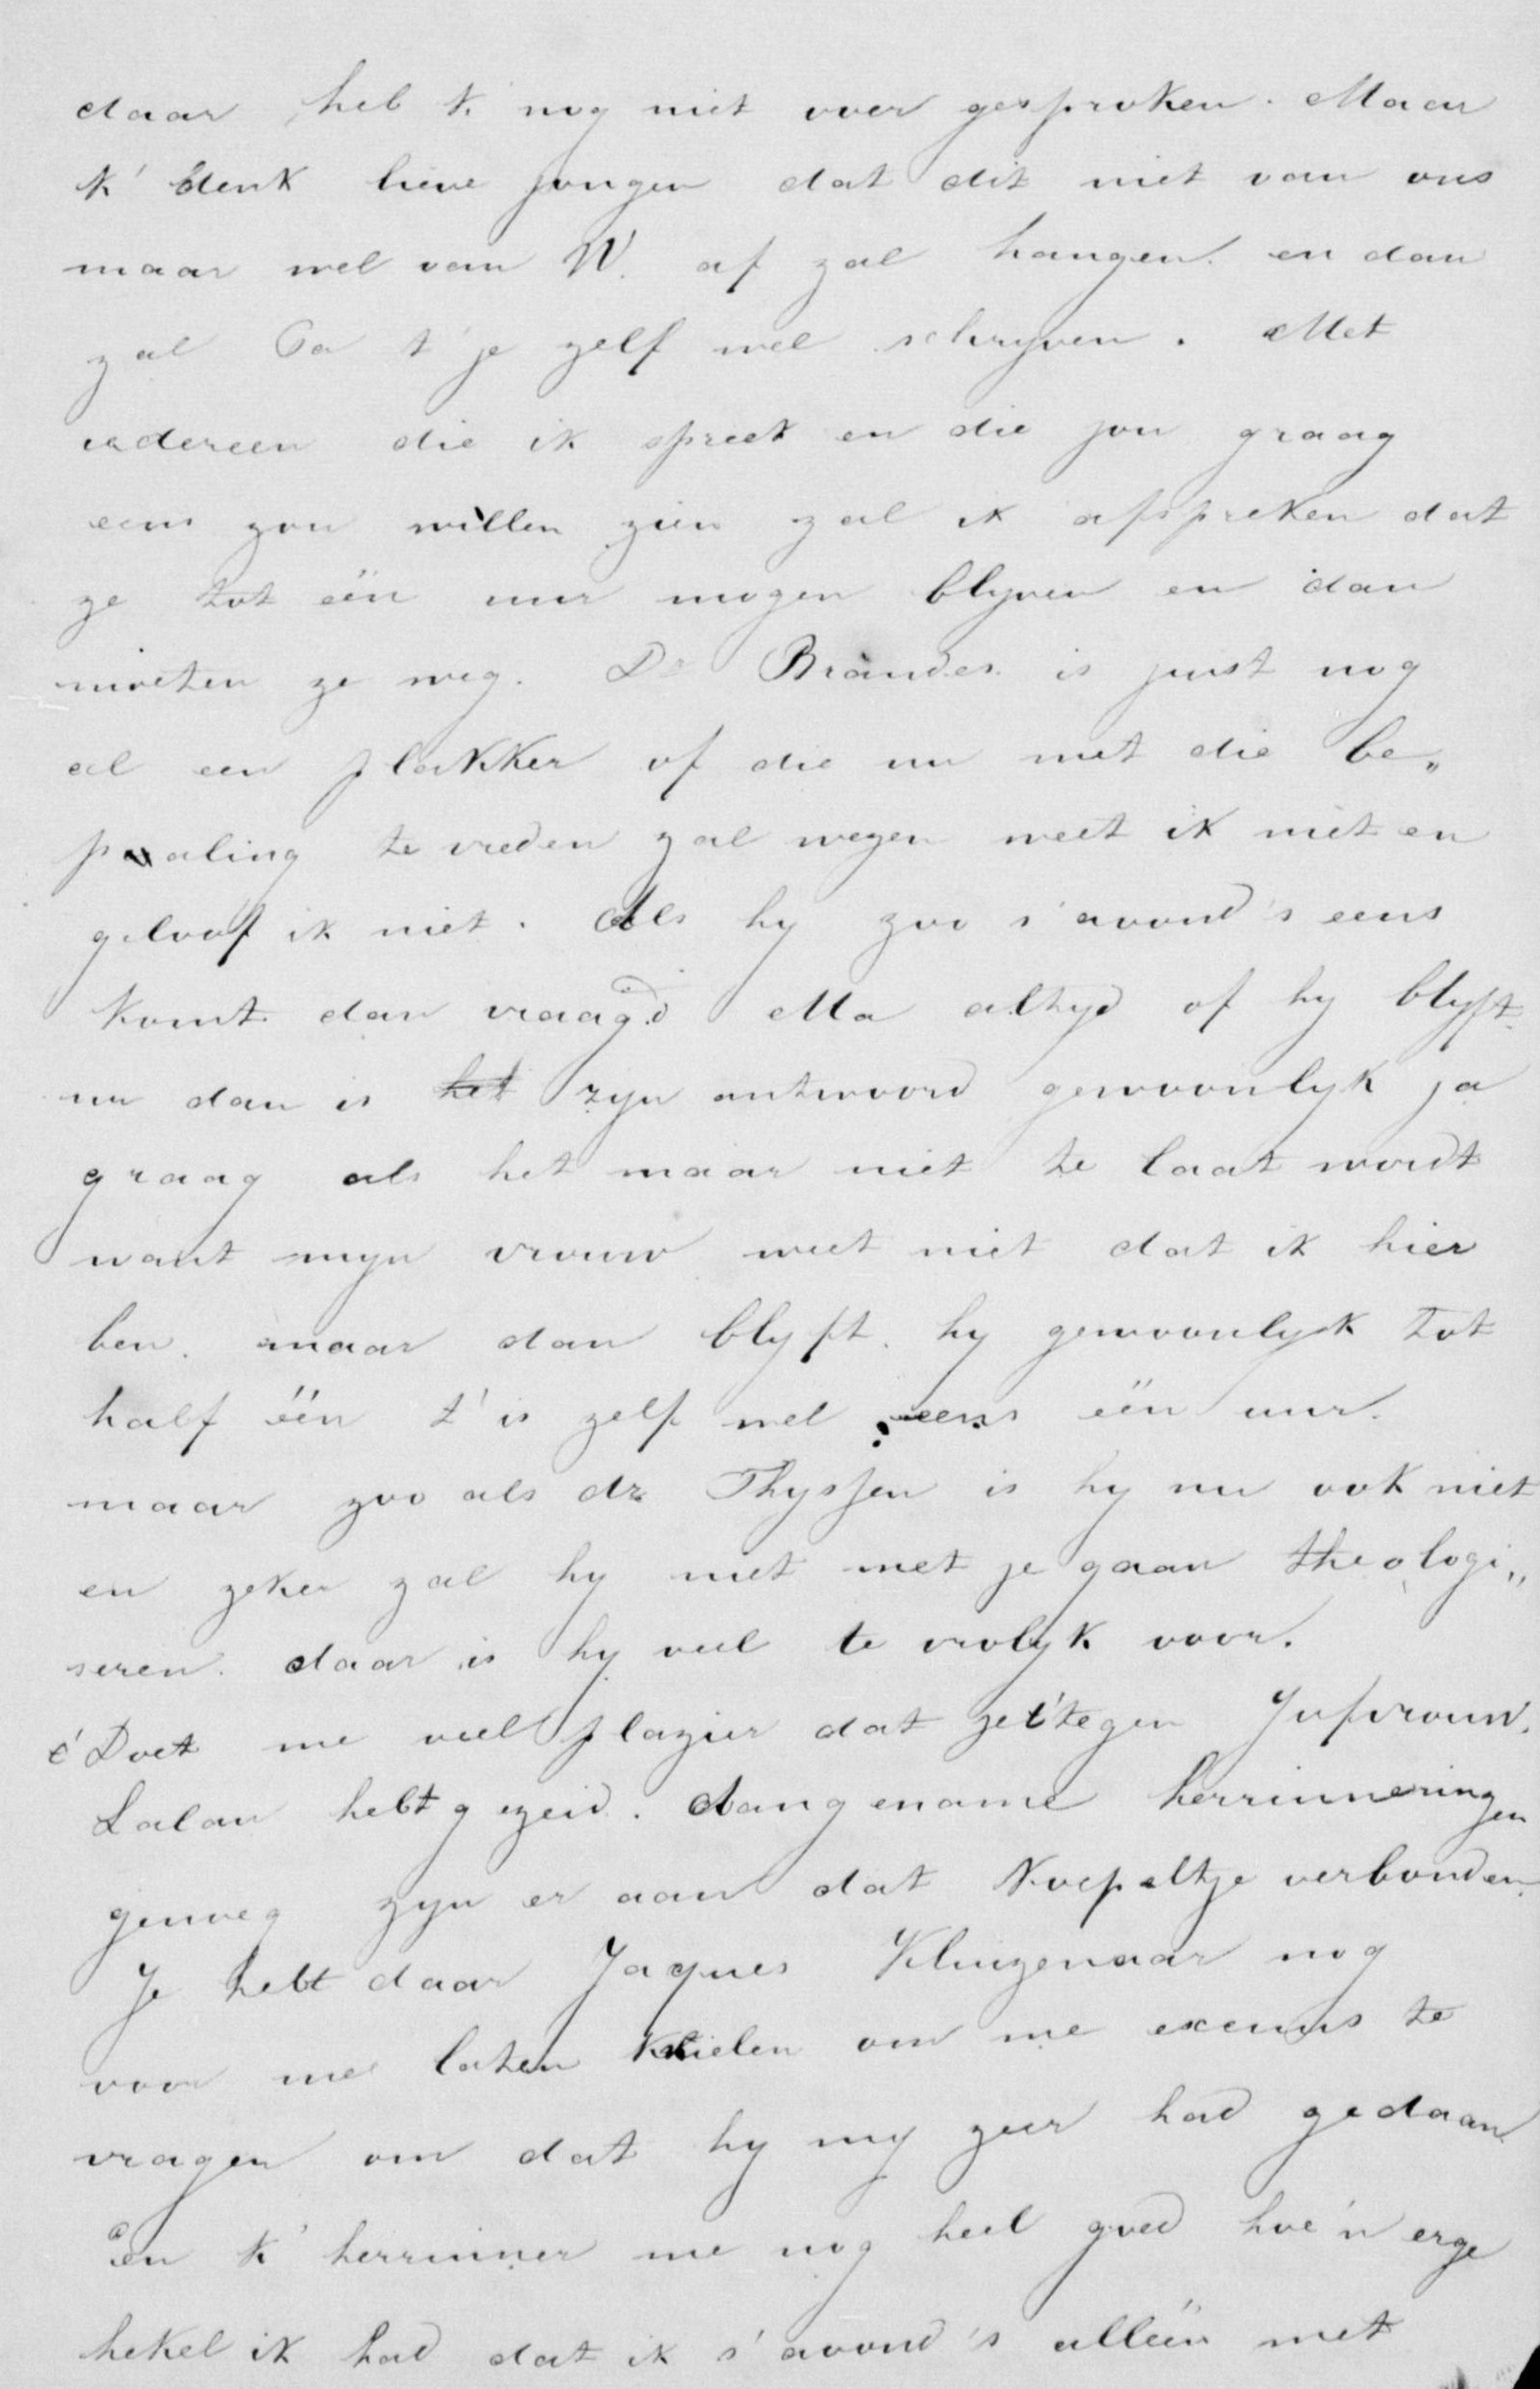 daar, heb k' nog niet over gesproken. Maar
k' denk lieve jongen dat dit niet van ons
maar wel van W. af zal hangen. en dan
zal Pa t' je zelf wel schryven. Met
iedereen die ik spreek en die jou graag
eens zou willen zien zal ik afspreken dat
ze tot één uur mogen blyven en dan
moeten ze weg. Dr Brandes is juist nog
al een plakker of die nu met die be„
paling te vreden zal wezen weet ik niet en
geloof ik niet. Als hy zoo s'avond's eens
komt dan vraagd Ma altyd of hy blyft.
nu dan is het zyn antwoord gewoonlyk ja
graag als het maar niet te laat wordt
want myn vrouw weet niet dat ik hier
ben. maar dan blyft hy gewoonlyk tot
half één t' is zelf wel eens één uur.
maar zoo als dr Thyssen is hy nu ook niet
en zeker zal hy niet met je gaan theologi„
seren. daar is hy veel te vrolyk voor.
t' Doet me veel plazier dat je t' tegen Jufvrouw.
Lalau hebt gezeid. Aangename herrinneringen
genoeg zyn er aan dat Koepeltje verbonden.
Je hebt daar Jaques Kluizenaar nog
voor me laten knielen om me excuus te
vragen om dat hy my zeer had gedaan
en k' herrinner me nog heel goed hoe'n erge
hekel ik had dat ik s'avond's alléén met